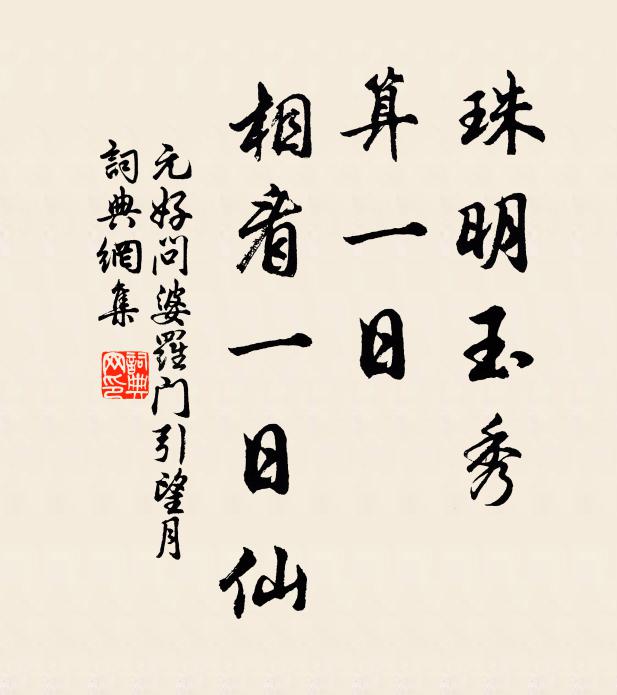 珠明玉秀
算一日
相看一日仙
元好問婆羅門引望月
詞典網集
詞典网印